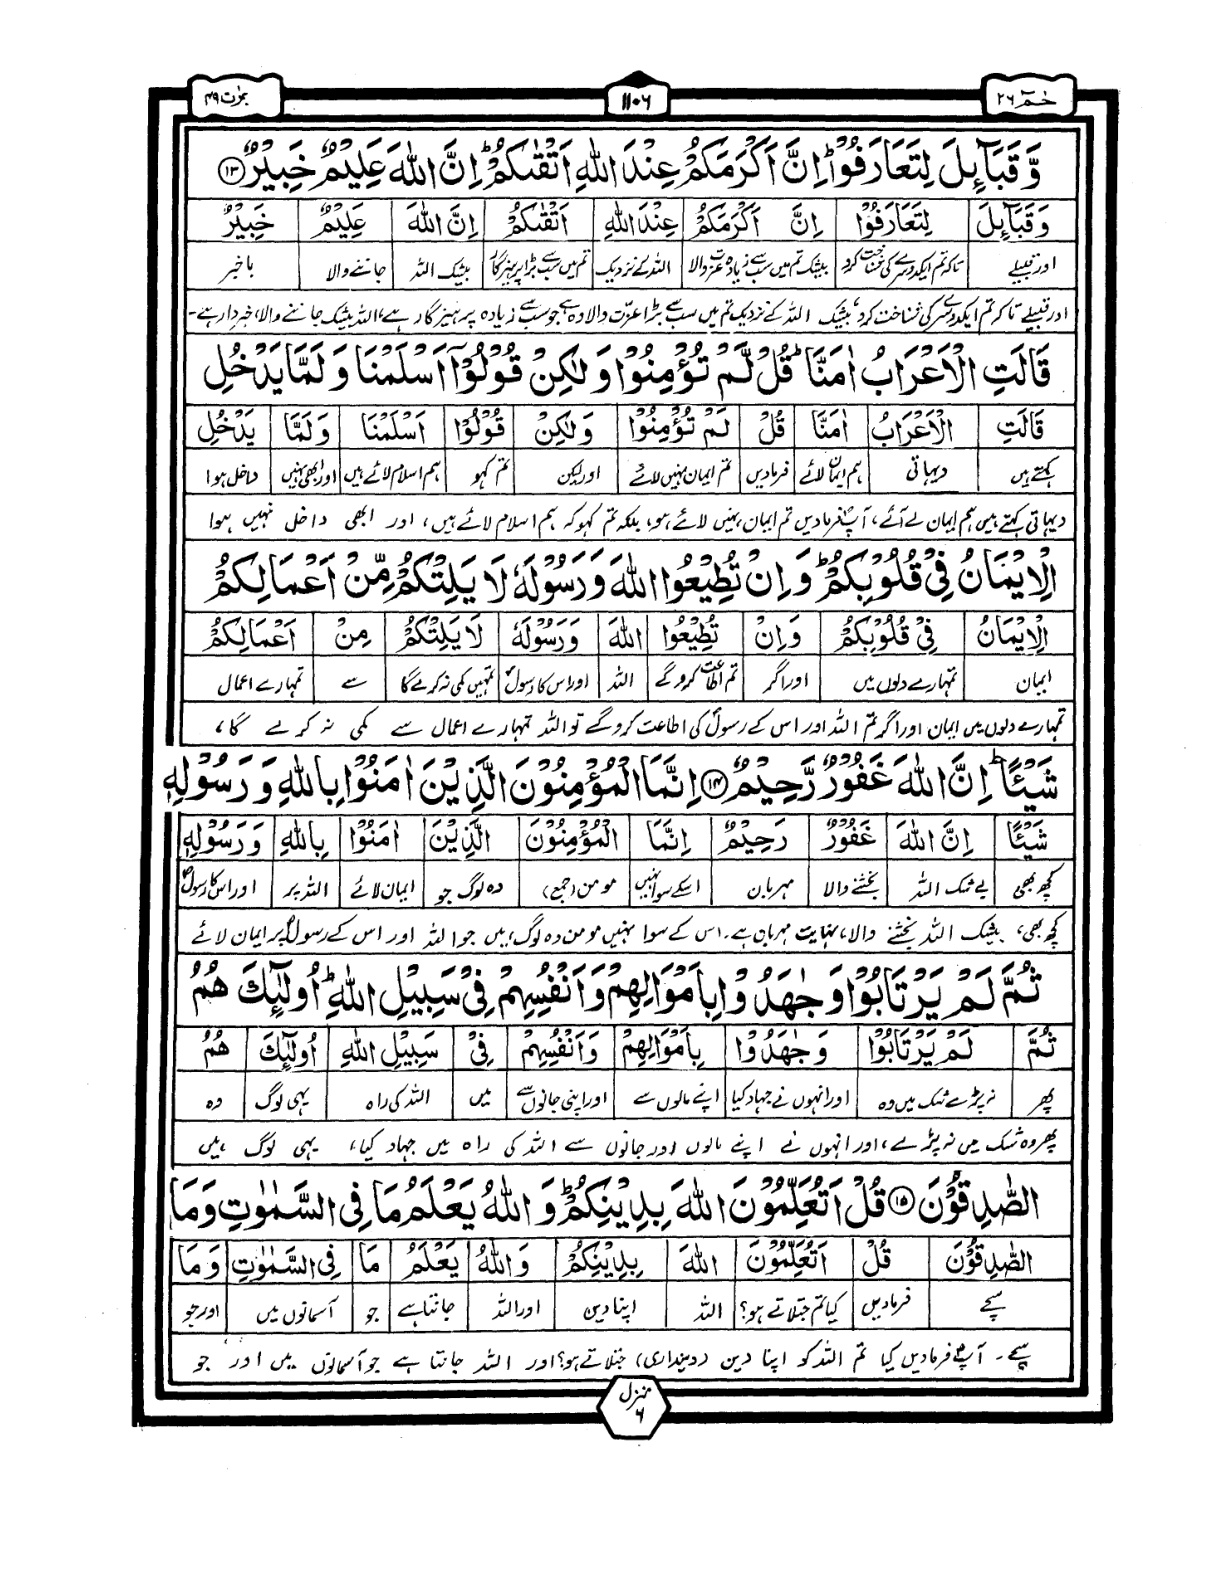 حٰمٓ ۲۶
۱۱۰۶
وَّقَبَآئِلَ لِتَعَارَفُوْا ؕ اِنَّ اَكْرَمَكُمْ عِنْدَ اللّٰهِ اَتْقٰىكُمْ ؕ اِنَّ اللّٰهَ عَلِيْمٌ خَبِيْرٌ ﴿۱۳﴾
وَقَبَآئِلَ لِتَعَارَفُوْا اِنَّ اَكْرَمَكُمْ عِنْدَ اللّٰهِ اَتْقٰىكُمْ اِنَّ اللّٰهَ عَلِيْمٌ خَبِيْرٌ
اور قبیلے تاکہ تم ایکدوسرے کی شناخت کرو بیشک تم میں سب سے زیادہ عزت والا اللہ کے نزدیک تم میں سب سے بڑا پرہیزگار بیشک اللہ جاننے والا باخبر
اور قبیلے تاکہ تم ایکدوسرے کی شناخت کرو، بیشک اللہ کے نزدیک تم میں سب سے بڑا عزّت والا وہ ہے جو سب سے زیادہ پرہیزگار ہے، اللہ بیشک جاننے والا، خبردار ہے۔
قَالَتِ الْاَعْرَابُ اٰمَنَّا ؕ قُلْ لَّمْ تُؤْمِنُوْا وَلٰكِنْ قُوْلُوْٓا اَسْلَمْنَا وَلَمَّا يَدْخُلِ
قَالَتِ الْاَعْرَابُ اٰمَنَّا قُلْ لَمْ تُؤْمِنُوْا وَلٰكِنْ قُوْلُوْٓا اَسْلَمْنَا وَلَمَّا يَدْخُلِ
کہتے ہیں دیہاتی ہم ایمان لائے فرمادیں تم ایمان نہیں لائے اور لیکن تم کہو ہم اسلام لائے ہیں اور ابھی نہیں داخل ہوا
دیہاتی کہتے ہیں ہم ایمان لے آئے، آپؐ فرمادیں تم ایمان نہیں لائے ہو، بلکہ تم کہو کہ ہم اسلام لائے ہیں، اور ابھی داخل نہیں ہوا
الْاِيْمَانُ فِيْ قُلُوْبِكُمْ ؕ وَاِنْ تُطِيْعُوا اللّٰهَ وَرَسُوْلَهٗ لَا يَلِتْكُمْ مِّنْ اَعْمَالِكُمْ
الْاِيْمَانُ فِيْ قُلُوْبِكُمْ وَاِنْ تُطِيْعُوا اللّٰهَ وَرَسُوْلَهٗ لَا يَلِتْكُمْ مِنْ اَعْمَالِكُمْ
ایمان تمہارے دلوں میں اور اگر تم اطاعت کروگے اللہ اور اس کا رسولؐ تمہیں کمی نہ کرے گا سے تمہارے اعمال
تمہارے دلوں میں ایمان اور اگر تم اللہ اور اس کے رسولؐ کی اطاعت کروگے تو اللہ تمہارے اعمال سے کمی نہ کرے گا،
شَيْـًٔا ؕ اِنَّ اللّٰهَ غَفُوْرٌ رَّحِيْمٌ ﴿۱۴﴾ اِنَّمَا الْمُؤْمِنُوْنَ الَّذِيْنَ اٰمَنُوْا بِاللّٰهِ وَرَسُوْلِهٖ
شَيْـًٔا اِنَّ اللّٰهَ غَفُوْرٌ رَحِيْمٌ اِنَّمَا الْمُؤْمِنُوْنَ الَّذِيْنَ اٰمَنُوْا بِاللّٰهِ وَرَسُوْلِهٖ
کچھ بھی بے شک اللہ بخشنے والا مہربان اسکے سوا نہیں مومن (جمع) وہ لوگ جو ایمان لائے اللہ پر اور اس کا رسولؐ
کچھ بھی، بیشک اللہ بخشنے والا، نہایت مہربان ہے۔ اس کے سوا نہیں مومن وہ لوگ ہیں جو اللہ اور اس کے رسولؐ پر ایمان لائے
ثُمَّ لَمْ يَرْتَابُوْا وَجٰهَدُوْا بِاَمْوَالِهِمْ وَاَنْفُسِهِمْ فِيْ سَبِيْلِ اللّٰهِ ؕ اُولٰٓئِكَ هُمُ
ثُمَّ لَمْ يَرْتَابُوْا وَجٰهَدُوْا بِاَمْوَالِهِمْ وَاَنْفُسِهِمْ فِيْ سَبِيْلِ اللّٰهِ اُولٰٓئِكَ هُمُ
پھر نہ پڑے شک میں وہ اور انہوں نے جہاد کیا اپنے مالوں سے اور اپنی جانوں سے میں اللہ کی راہ یہی لوگ وہ
پھر وہ شک میں نہ پڑے، اور انہوں نے اپنے مالوں اور جانوں سے اللہ کی راہ میں جہاد کیا، یہی لوگ ہیں
الصّٰدِقُوْنَ ﴿۱۵﴾ قُلْ اَتُعَلِّمُوْنَ اللّٰهَ بِدِيْنِكُمْ ؕ وَاللّٰهُ يَعْلَمُ مَا فِي السَّمٰوٰتِ وَمَا
الصّٰدِقُوْنَ قُلْ اَتُعَلِّمُوْنَ اللّٰهَ بِدِيْنِكُمْ وَاللّٰهُ يَعْلَمُ مَا فِي السَّمٰوٰتِ وَمَا
سچے فرمادیں کیا تم جتلاتے ہو؟ اللہ اپنا دین اور اللہ جانتا ہے جو آسمانوں میں اور جو
سچے۔ آپؐ فرمادیں کیا تم اللہ کو اپنا دین (دینداری) جتلاتے ہو؟ اور اللہ جانتا ہے جو آسمانوں میں اور جو
منزل ۶